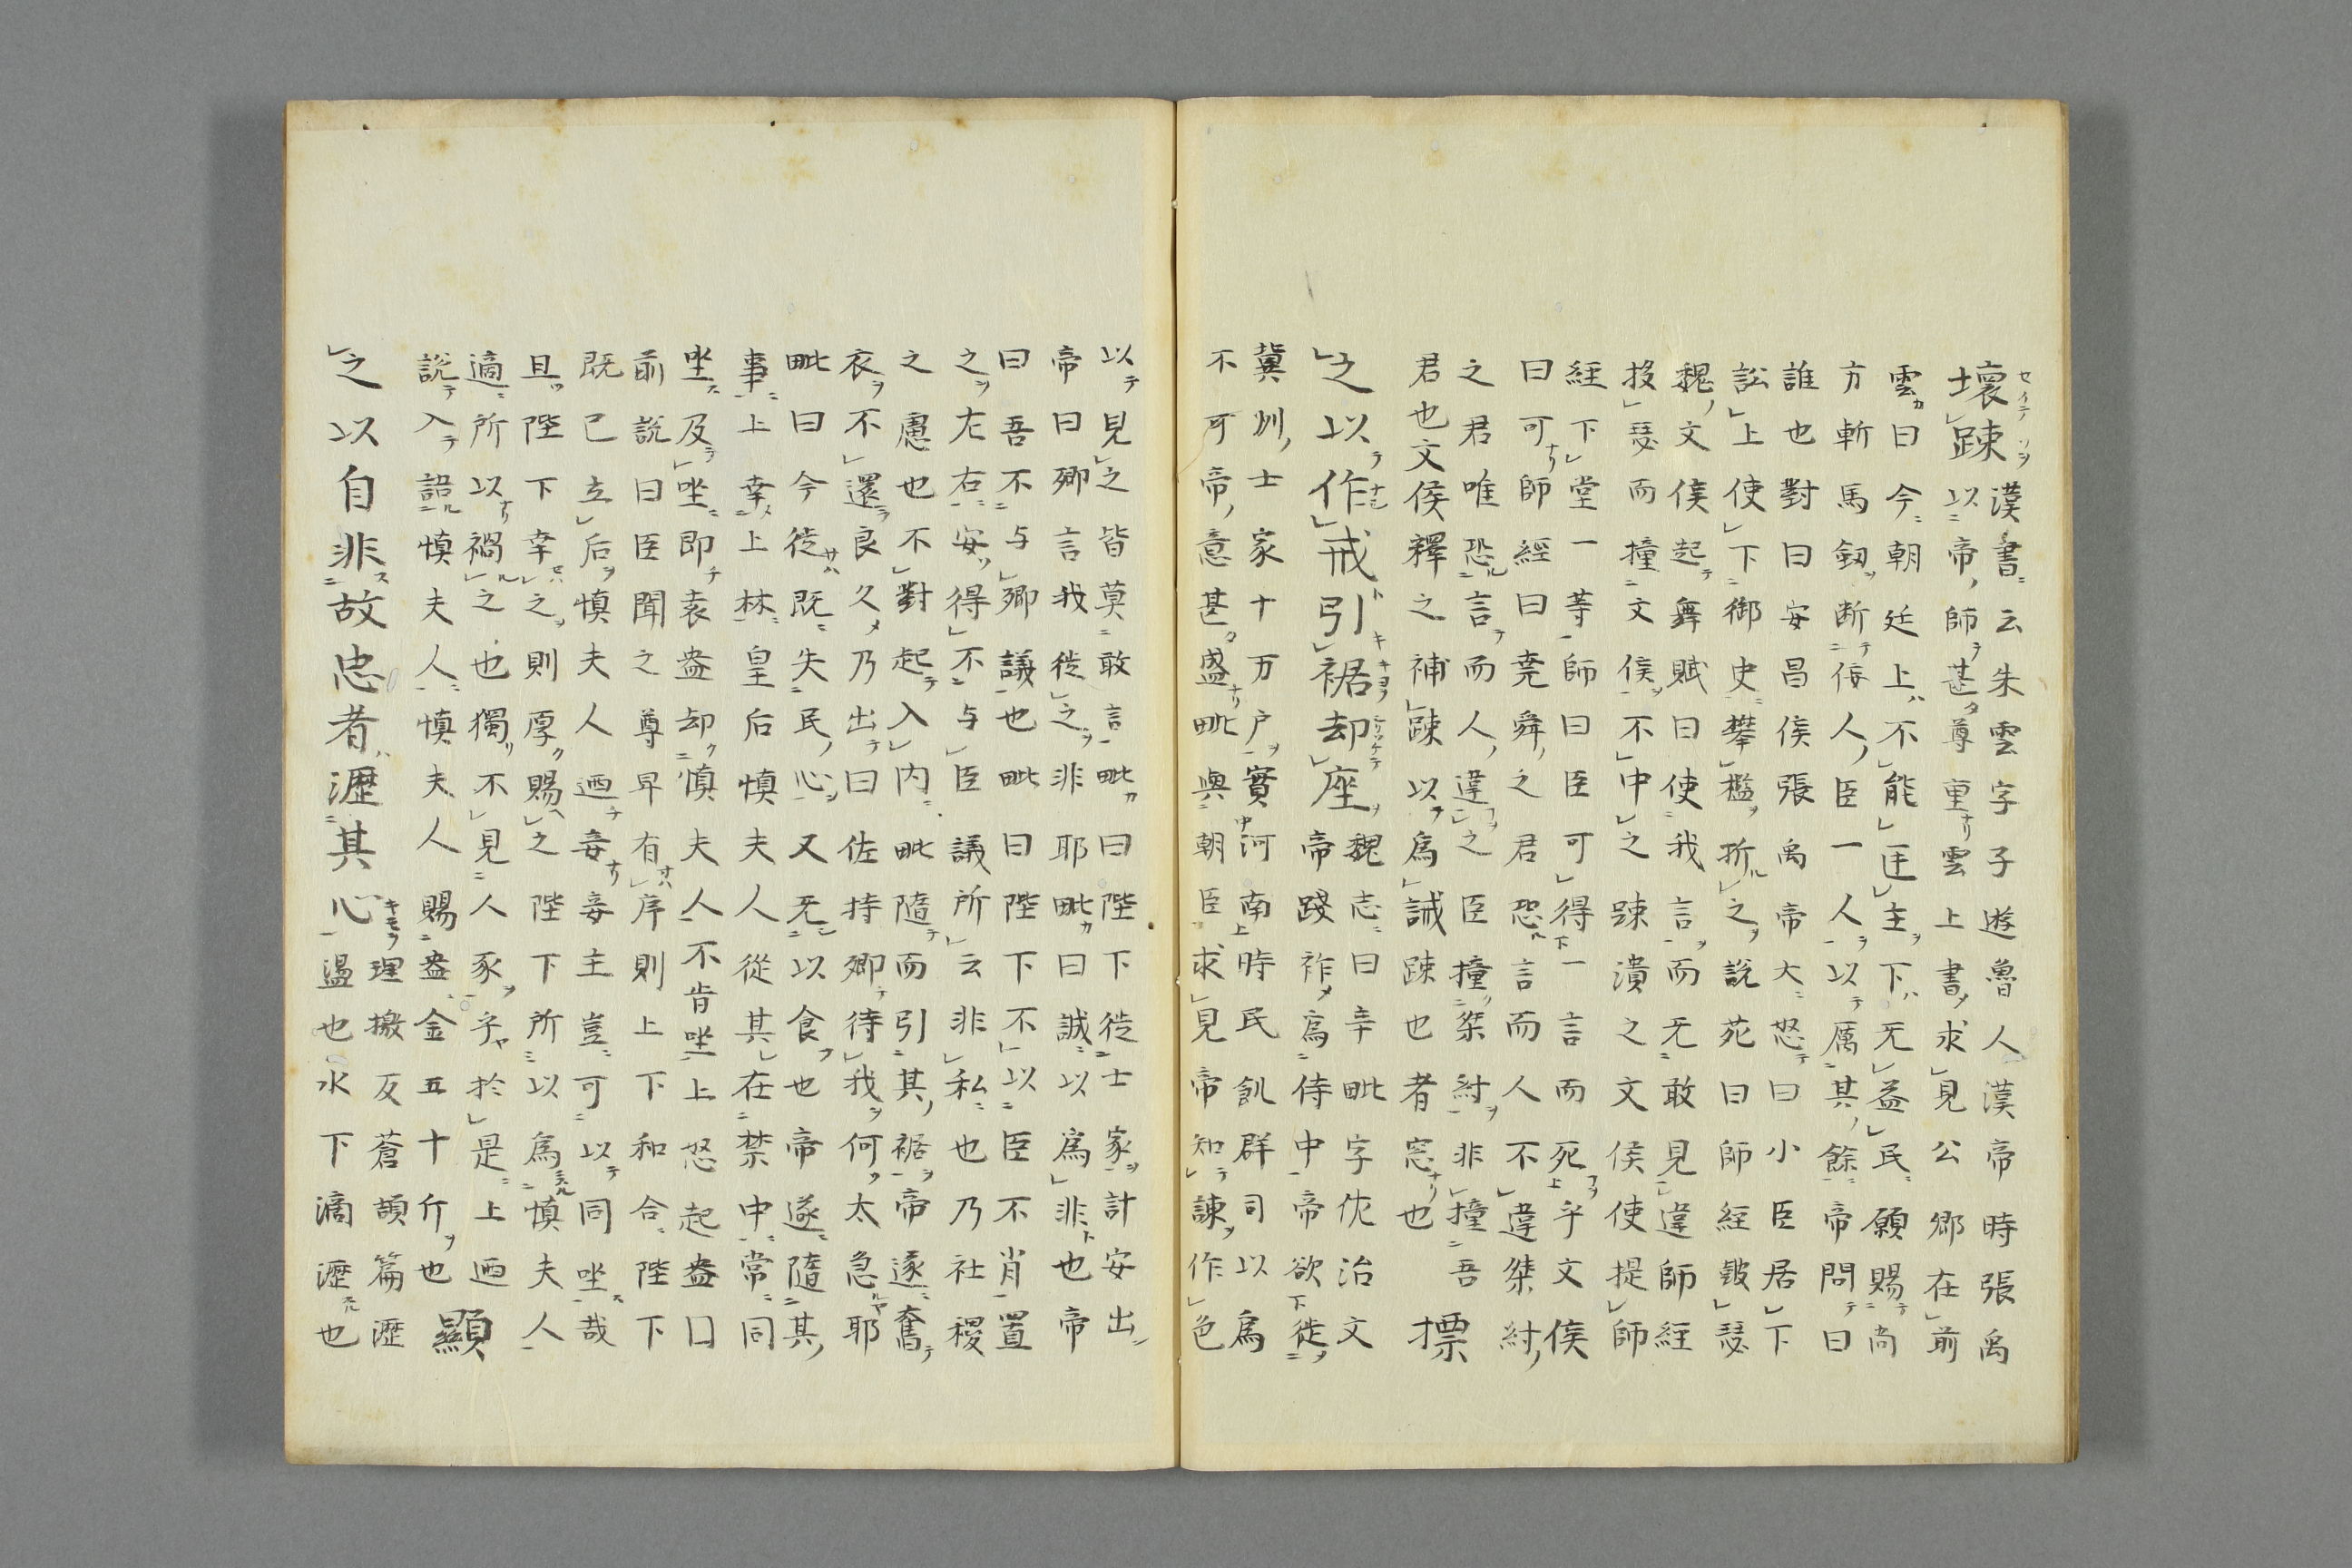 壞踈漢書云朱雲字子遊魯人漢帝時張禹
以帝師甚尊重雲上書求見公卿在前
雲曰今朝廷上不能匡主下无益民願賜尚
方斬馬釼断佞人臣一人以厲其餘帝問曰
誰也對曰安昌侯張禹帝大怒曰小臣居下
訟上使下御史攀檻折之說苑曰師經皷瑟
魏文侯起舞賦曰使我言而无敢見違師経
投瑟而撞文侯不中之踈潰之文侯使提師
経下堂一等師曰臣可得一言而死乎文侯
曰可師經曰尭舜之君恐言而人不違桀紂
之君唯恐言而人違之臣撞桀紂非撞吾
君也文侯釋之補踈以爲誡踈也者窓也
標
之以作戒引裾却座魏志曰辛毗字佐治文
帝踐祚爲侍中帝欲徙
冀州士家十万户實河南時民飢群司以爲
不可帝意甚盛毗與朝臣求見帝知諫作色
以見之皆莫敢言毗曰陛下徙士家計安出
帝曰卿言我徙之非耶毗曰誠以爲非也帝
曰吾不与卿議也毗曰陛下不以臣不肖置
之左右安得不与臣議所云非私也乃社稷
之慮也不對起入内毗隨而引其裾帝遂奮
衣不還良久乃出曰佐持卿待我何太急耶
毗曰今徙既失民心又无以食也帝遂隨其
事上幸上林皇后慎夫人從其在禁中常同
坐及坐即袁盎却慎夫人不肯坐上怒起盎曰
前說曰臣聞之尊卑有序則上下和合陛下
既已立后慎夫人迺妾妾主豈可以同坐哉
且陛下幸之則厚賜之陛下所以爲慎夫人
適所以禍之也獨不見人豕乎於是上迺
說入語慎夫人慎夫人賜盎金五十斤也
顯
之以自非故忠者瀝其心理撽反蒼頡篇瀝
溫也水下滴瀝也